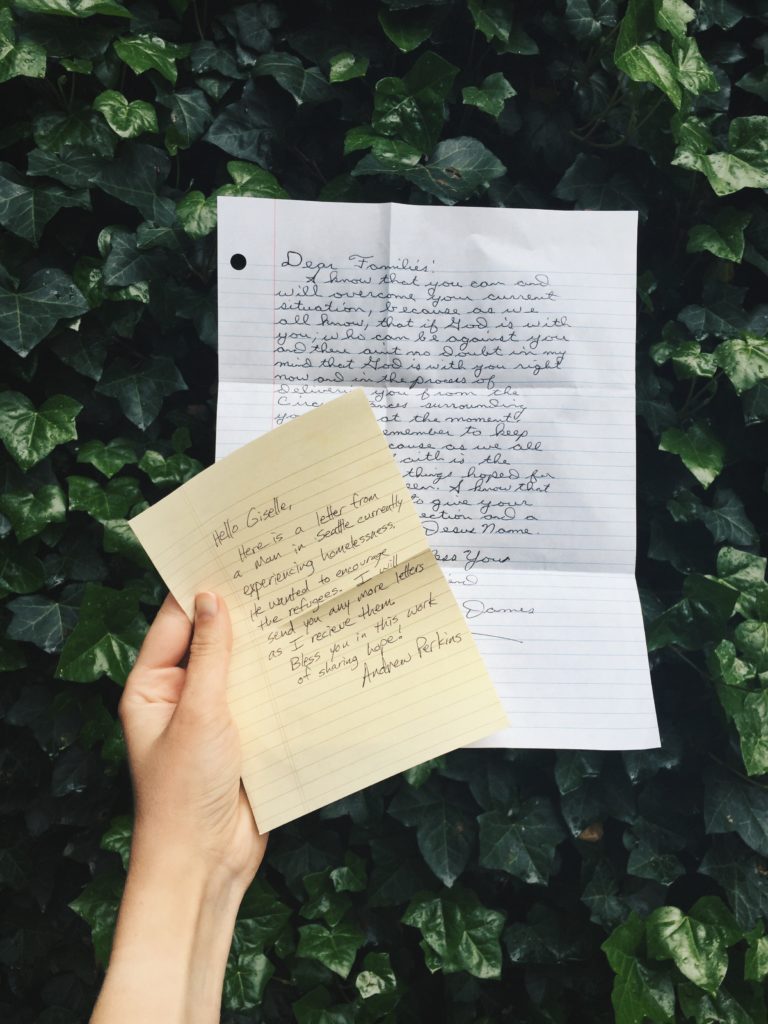 Dear Families:
I know that you can and
will overcome your current
situation, because as we
all know, that if God is with
you, who can be against you
and there aint no doubt in my
mind that God is with you right
now and in the process of
you from the
surrounding
at the moment
remember to keep
as we all
faith is the
things hoped for
I know that
to give your
and a
Jesus Name.
You
James
Hello Giselle,
Here is a letter from
a man in Seattle currently
experiencing homelessness.
He wanted to encourage
the refugees. I will
send you any more letters
as I recieve them.
Bless you in this work
of sharing hope!
Andrew Perkins